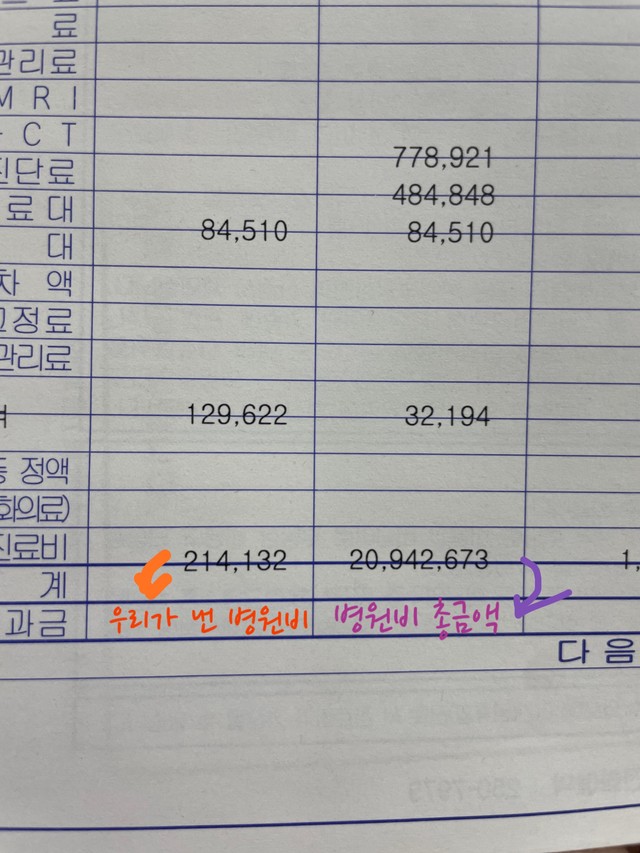 료
관리료
M R I
C T
778,921
진단료
484,848
료 대
84,510 84,510
대
차 액
교정료
관리료
129,622 32,194
정액
화의료)
진료비
214,132 20,942,673 1,
계
과금 우리가 낸 병원비 병원비 총금액
다 음